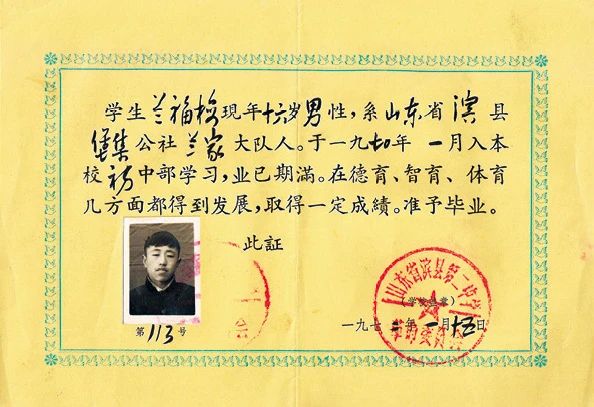 学生兰福現年十六岁男性，系山东省滨县
堡集公社兰家大队人。于一九七〇年一月入本
校初中部学习，业已期滿。在德育、智育、体育
几方面都得到发展，取得一定成績。准予毕业。
此証
山东省滨县第二中学
革命委员会
一九七年一月十五日
第113号